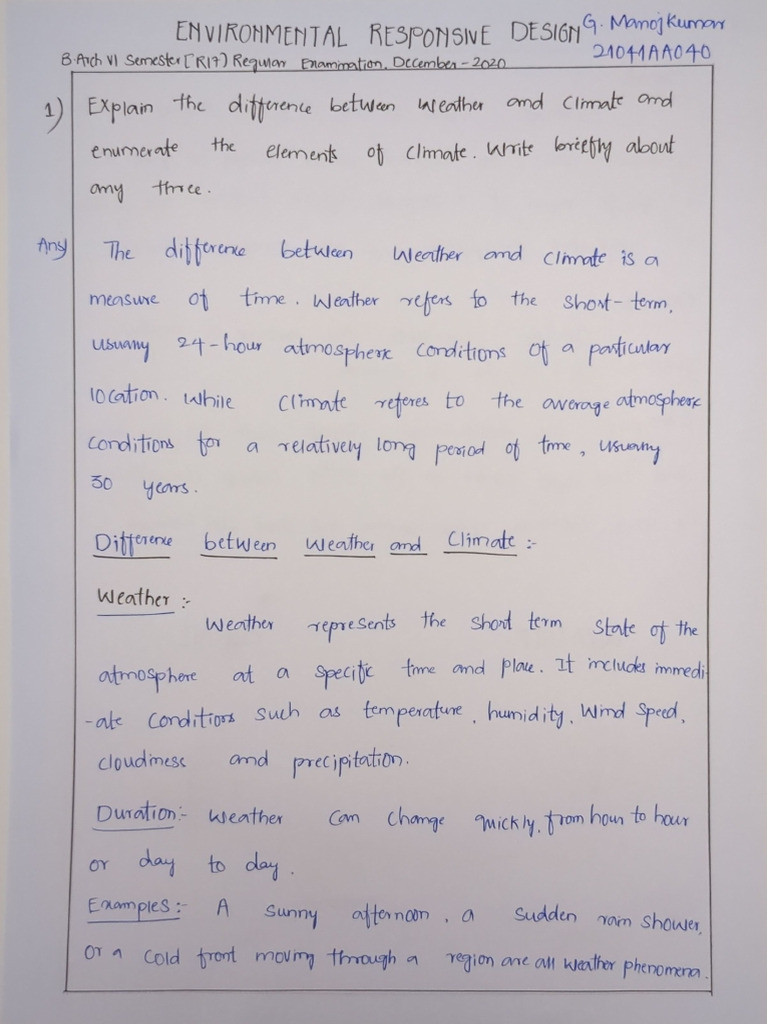 ENVIRONMENTAL RESPONSIVE DESIGN
G. Manoj Kumar
21041AA040
B.Arch VI Semester [R17] Regular Examination, December-2020
1) Explain the difference between Weather and Climate and
enumerate the elements of climate. Write briefly about
any three.
Ans) The difference between Weather and Climate is a
measure of time. Weather refers to the short-term,
usually 24-hour atmospheric conditions of a particular
location. While Climate referes to the average atmospheric
conditions for a relatively long period of time, usually
30 years.
Difference between Weather and Climate :-
Weather :-
Weather represents the short term state of the
atmosphere at a specific time and place. It includes immedi-
-ate conditions such as temperature, humidity, Wind Speed,
cloudiness and precipitation.
Duration:- Weather can change quickly, from hour to hour
or day to day.
Examples:- A sunny afternoon, a sudden rain shower,
or a cold front moving through a region are all weather phenomena.